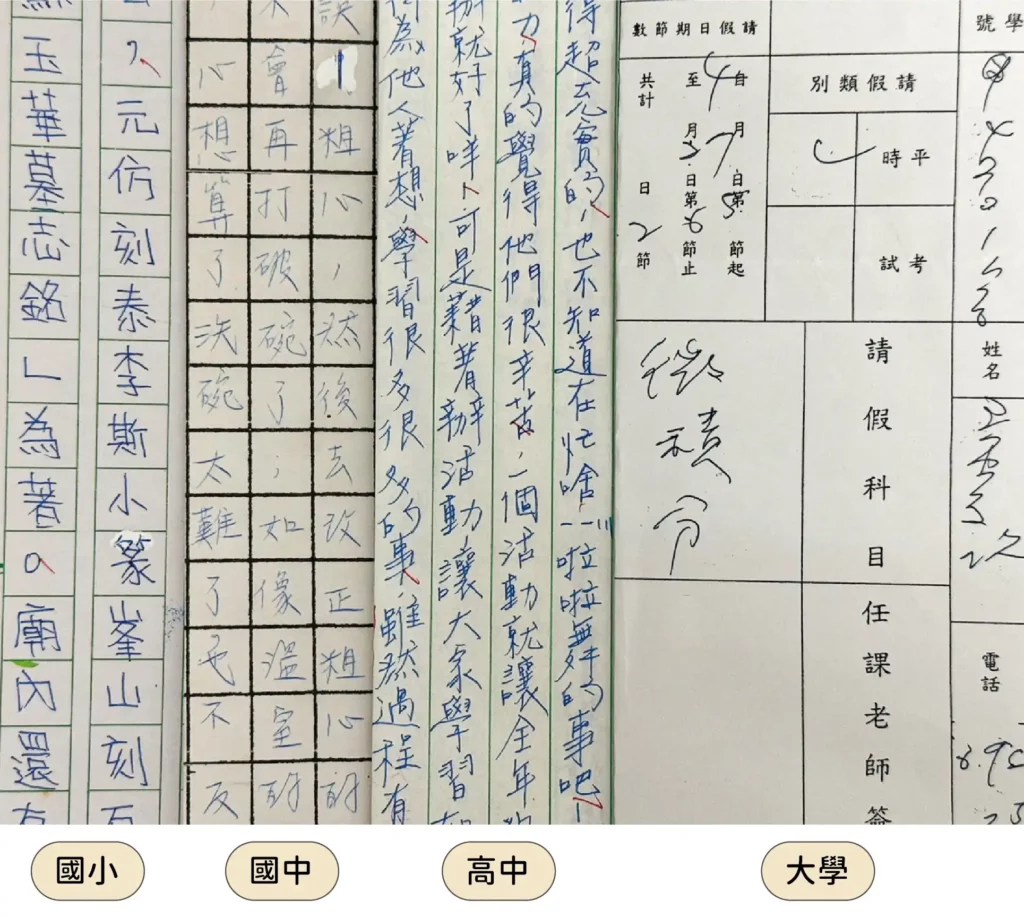 ，元仿刻泰李斯小篆峯山刻石
玉華墓志銘」為著。廟內還有
誤，粗心，然後去改正粗心的
不會再打破碗了；如像溫室的
心想算了洗碗太難了也不反
得超充實的，也不知道在忙啥…啦啦無的事吧！
力，真的覺得他們很辛苦，一個活動就讓全年
辦就好了咩！可是藉著辦活動，讓大家學習
為他人著想，學習很多很多的事，雖然過程有
學號
姓名
電話
請假類別
平時
考試
請假科目
任課老師簽
請假日期節數
自4月7日第5節起
至 月 日第6節止
共計 日2節
微積分
國小
國中
高中
大學